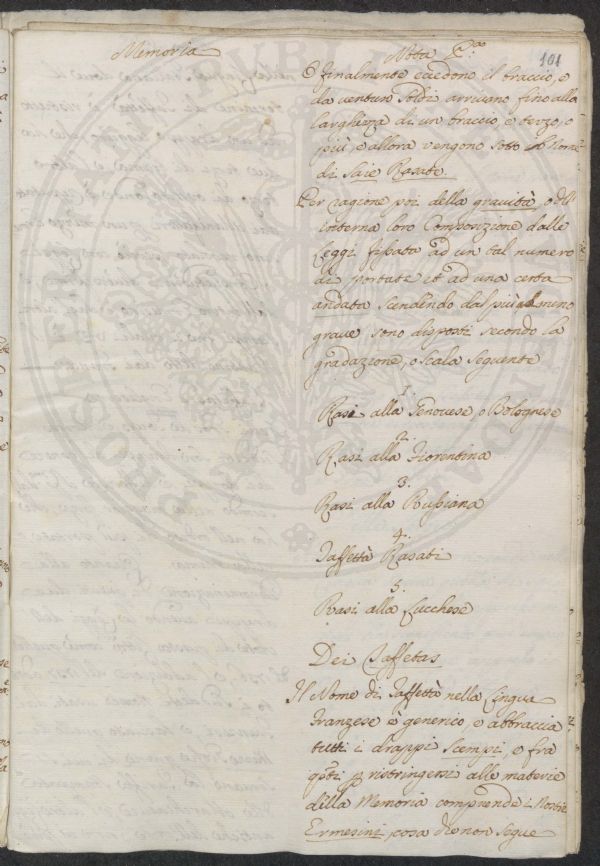 Memoria
Nota P.ª
101
O finalmente eccedono il braccio, e
da ventun soldi arrivano fino alla
larghezza di un braccio e terzo, o
più, e allora vengono sotto il Nome
di Saie Rasate.
Per ragione poi della gravità, o dell'
interna loro Composizione dalle
Leggi fissata ad un tal numero
di portate et ad una certa
andata scendendo dal più al meno
grave sono disposti secondo la
gradazione, o scala seguente
1.
Rasi alla Genovese o Bolognese
2.
Rasi alla Fiorentina
3.
Rasi alla Russiana
4.
Taffettà Rasati
5.
Rasi alla Lucchese
Dei Taffetas
Il Nome di Taffettà nella Lingua
Franzese è generico, e abbraccia
tutti i drappi Scempi, e fra
q.ti p ristringersi alle materie
della Memoria comprende i Nostri
Ermesini, cosa che non segue